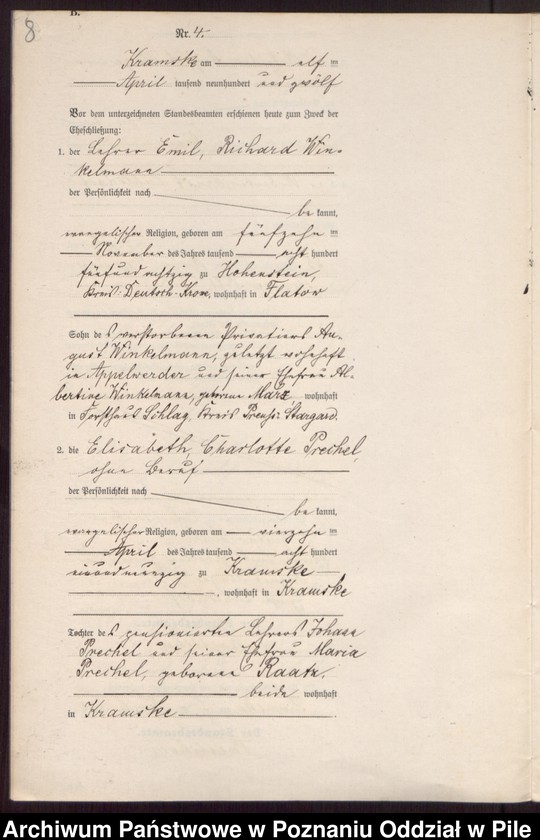 8
B.
Nr. 4.
Kramske am elf ten
April tausend neunhundert und zwölf
Vor dem unterzeichneten Standesbeamten erschienen heute zum Zweck der
Eheschließung:
1. der Lehrer Emil, Richard Win-
kelmann
der Persönlichkeit nach
be kannt,
evangelischer Religion, geboren am fünfzehn ten
November des Jahres tausend acht hundert
fünfundachtzig zu Hohenstein,
Kreis Deutsch-Krone, wohnhaft in Flatow
Sohn des verstorbenen Privatiers Au-
gust Winkelmann, zuletzt wohnhaft
in Appelwerder und seiner Ehefrau Al-
bertine Winkelmann, geborene März, wohnhaft
in Forsthaus Schlag, Kreis Preuß. Stargard.
2. die Elisabeth, Charlotte Prechel,
ohne Beruf
der Persönlichkeit nach
be kannt,
evangelischer Religion, geboren am vierzehn ten
April des Jahres tausend acht hundert
einundneunzig zu Kramske
, wohnhaft in Kramske
Tochter des pensionierten Lehrers Johann
Prechel und seiner Ehefrau Maria
Prechel, geborene Raatz,
beide wohnhaft
in Kramske
Archiwum Państwowe w Poznaniu Oddział w Pile